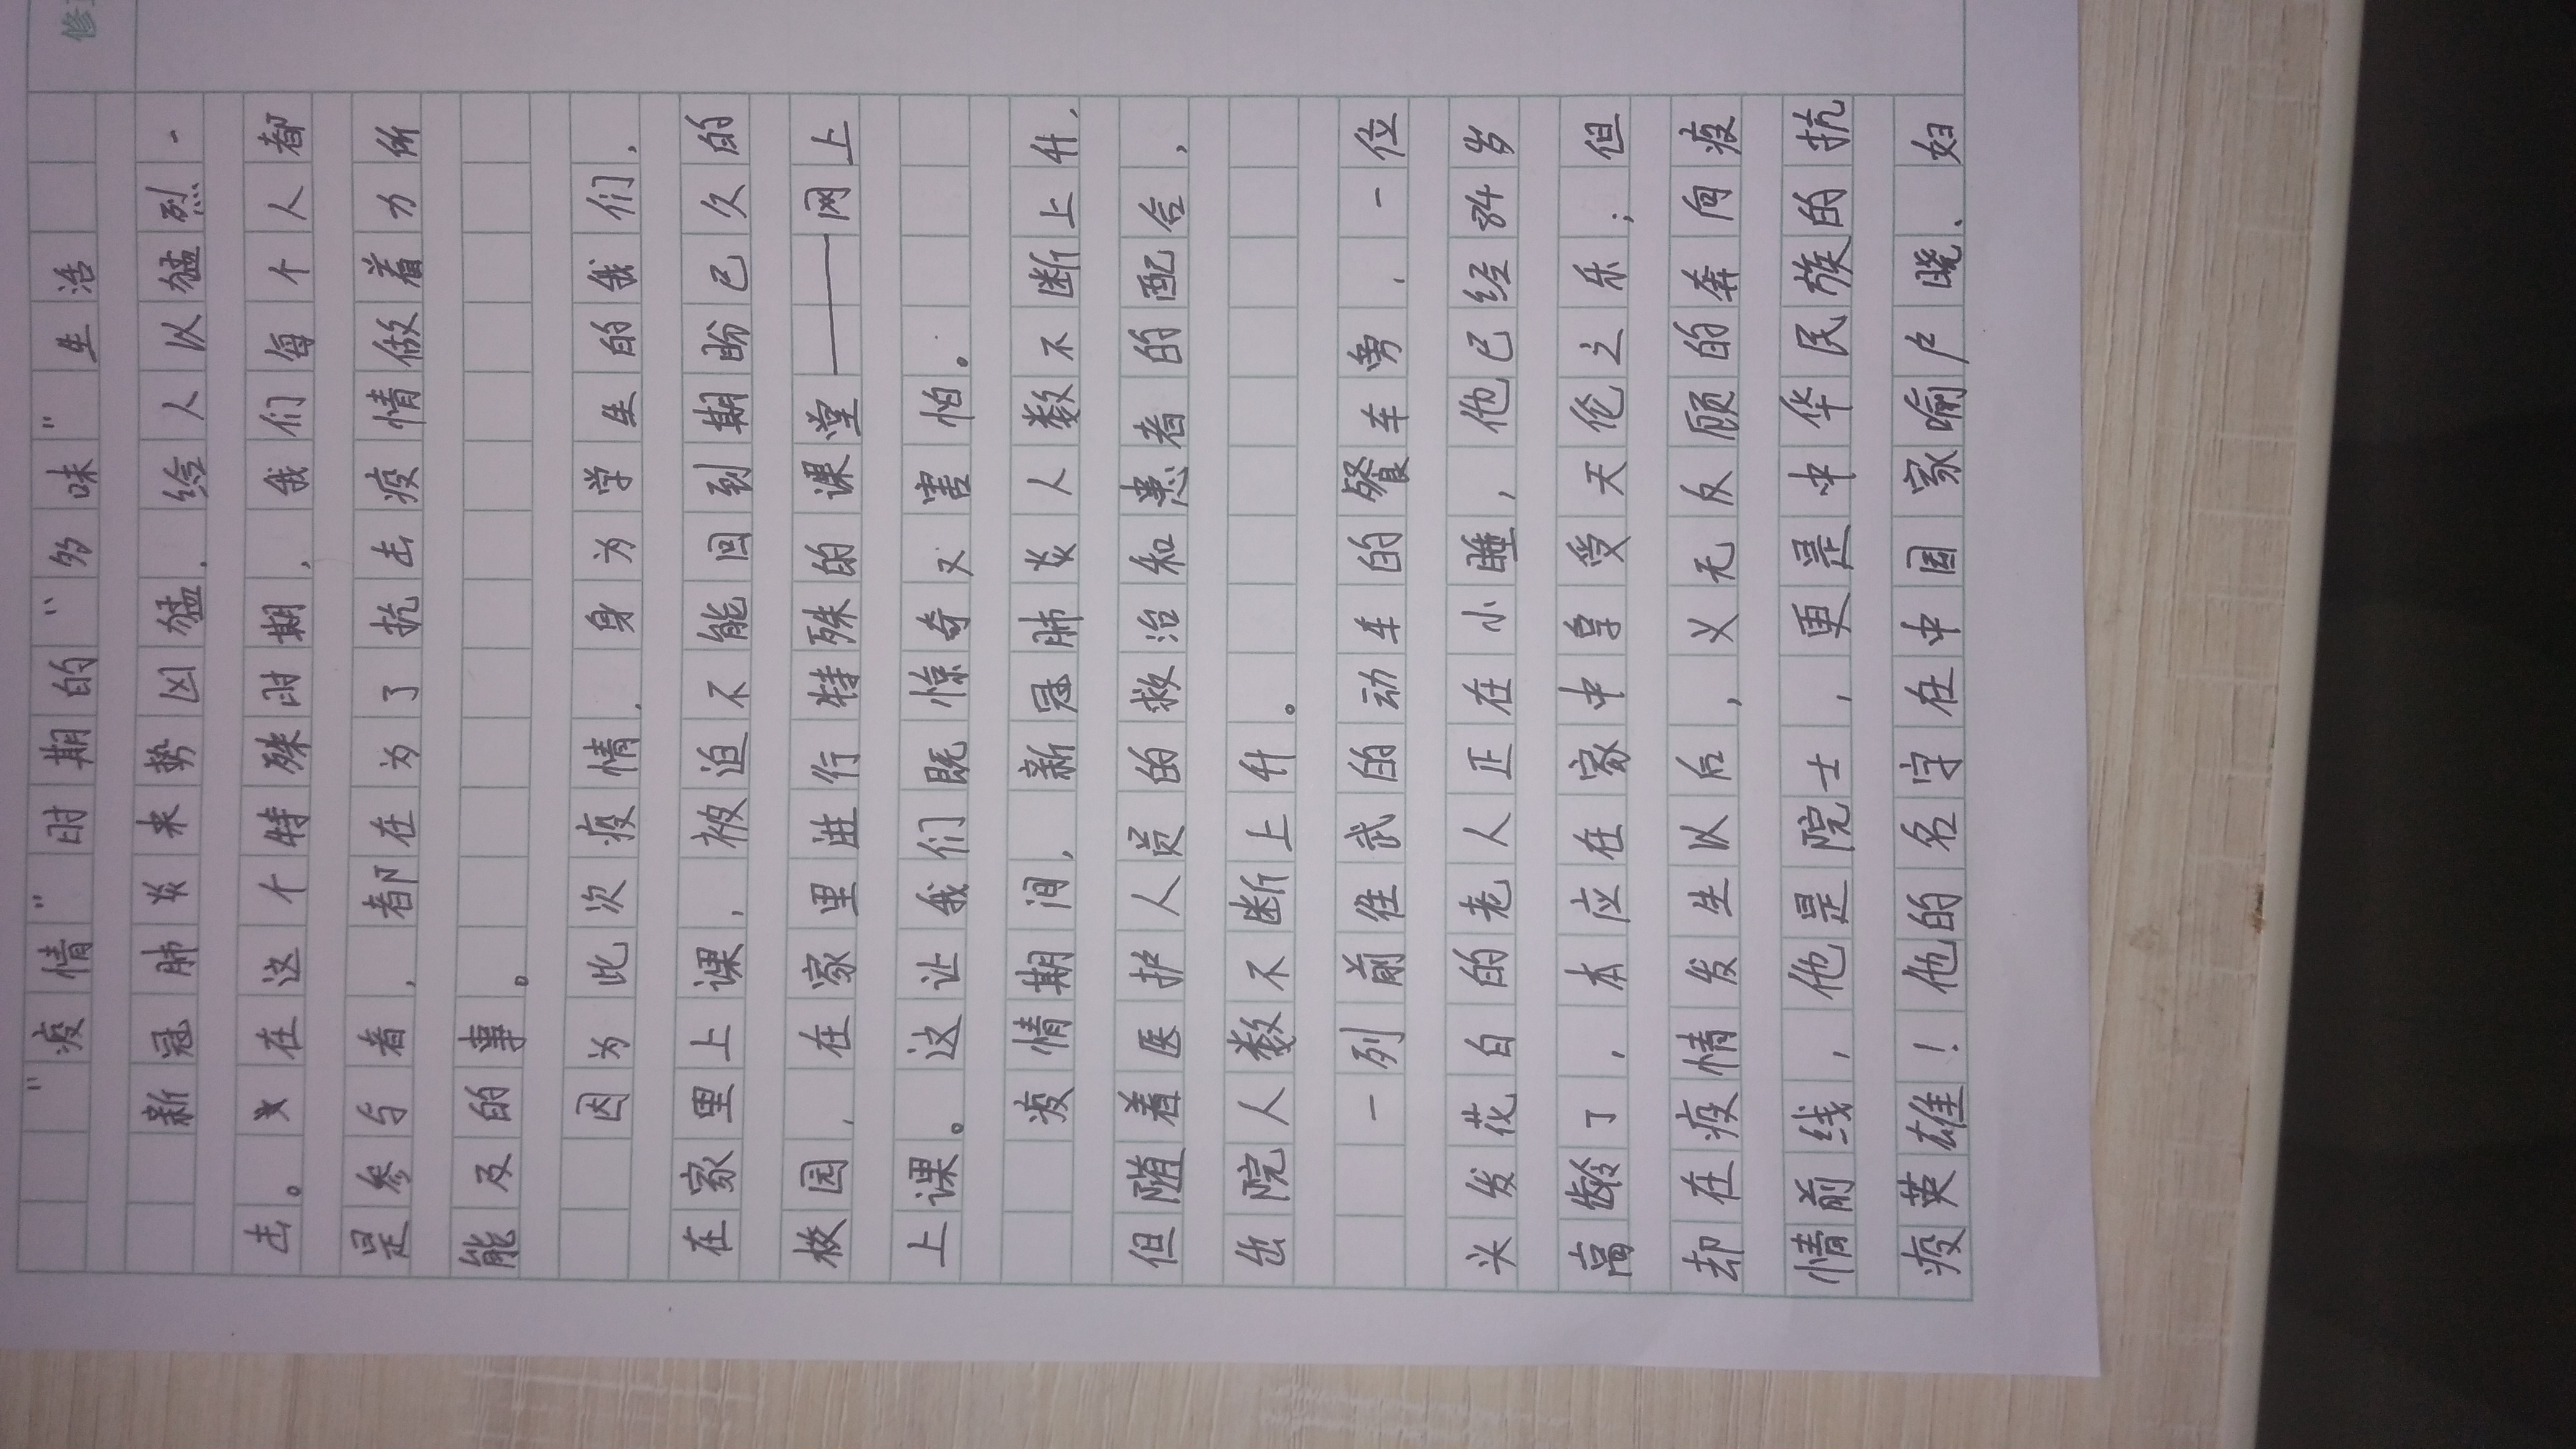 "疫情"时期的"多味"生活
修
新冠肺炎来势凶猛，给人以猛烈一
击。又在这个特殊时期，我们每个人都
是参与者，都在为了抗击疫情做着力所
能及的事。
因为此次疫情，身为学生的我们，
在家里上课，被迫不能回到期盼已久的
校园，在家里进行特殊的课堂——网上
上课。这让我们既惊奇又害怕。
疫情期间，新冠肺炎人数不断上升，
但随着医护人员的救治和患者的配合，
出院人数不断上升。
一列前往武的动车的餐车旁，一位
头发花白的老人正在小睡，他已经84岁
高龄了，本应在家中享受天伦之乐；但
却在疫情发生以后，义无反顾的奔向疫
情前线，他是院士，更是中华民族的抗
疫英雄！他的名字在中国家喻户晓、妇